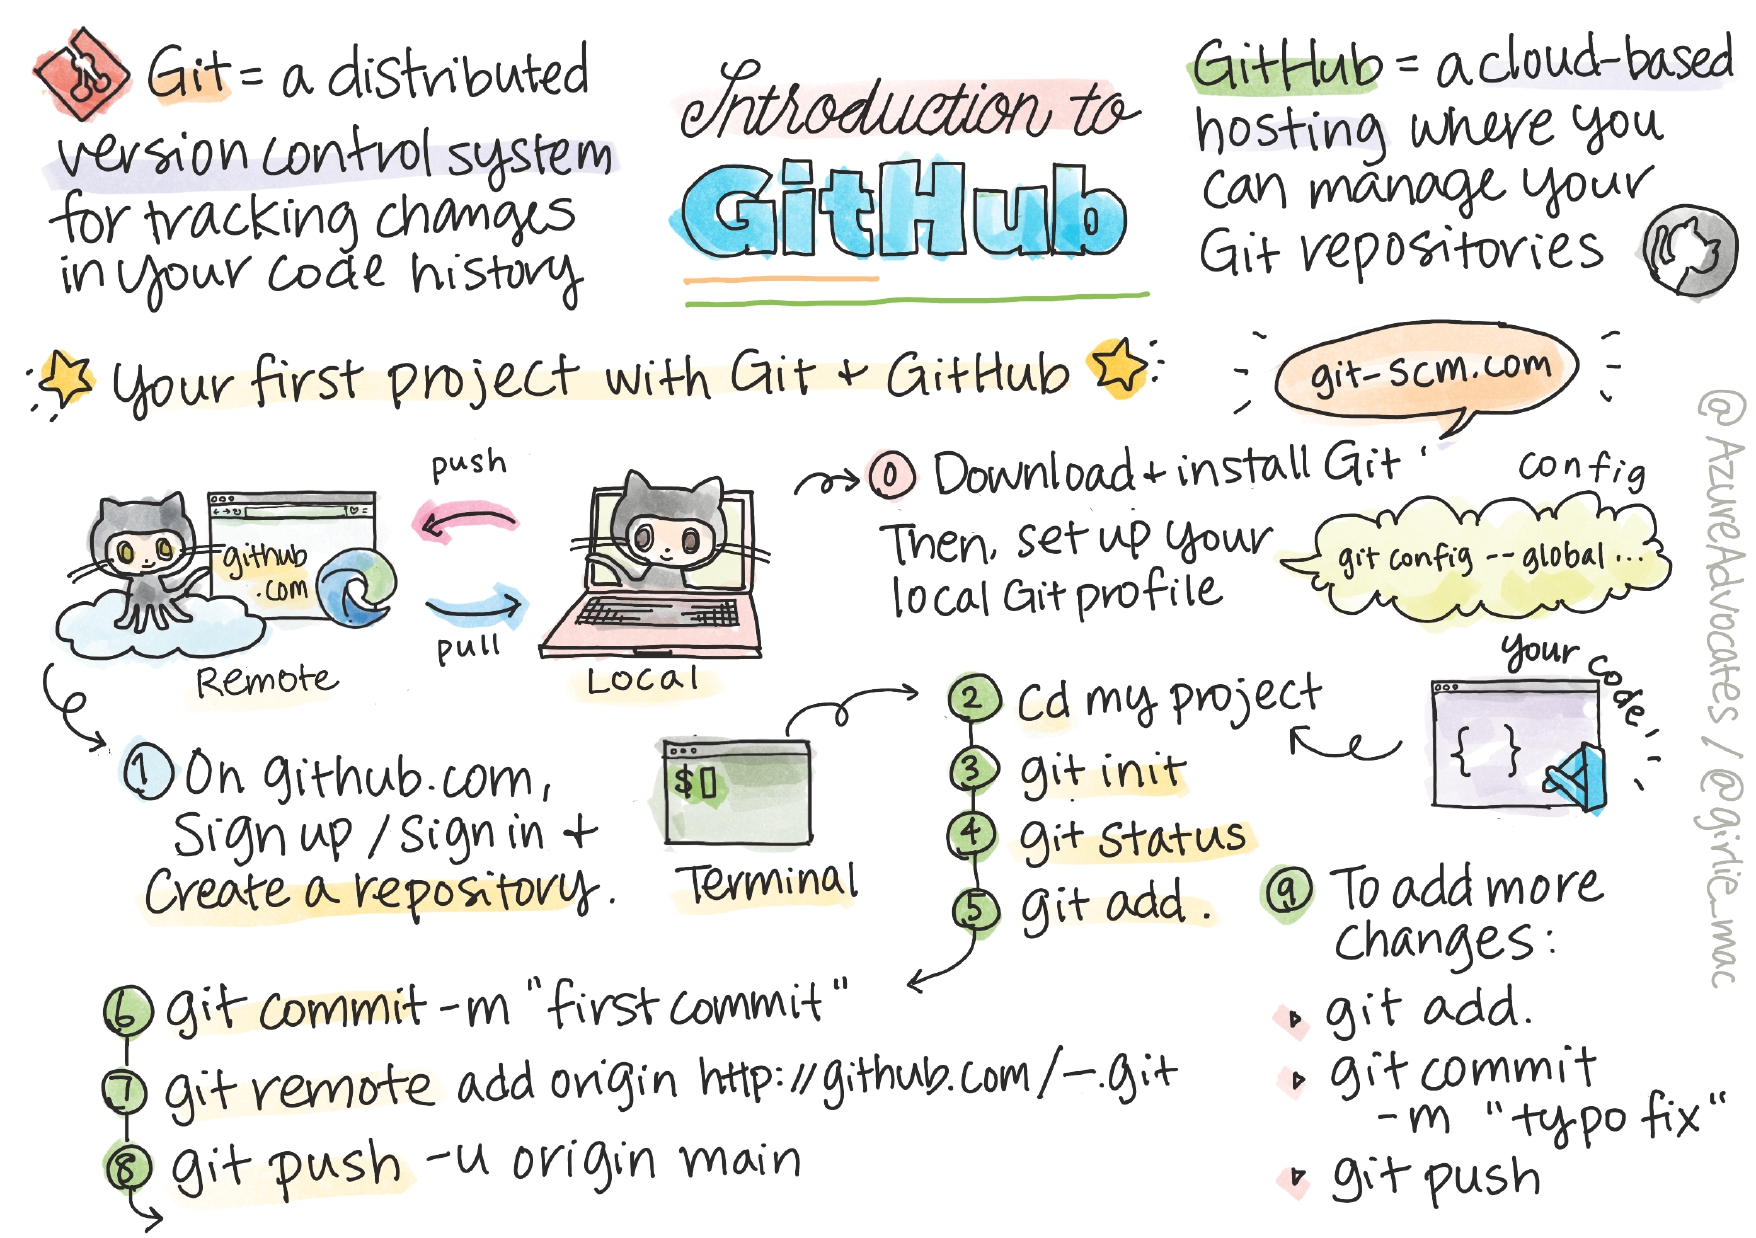 Git = a distributed
version control system
for tracking changes
in your code history
Introduction to
GitHub
GitHub = a cloud-based
hosting where you
can manage your
Git repositories
Your first project with Git + GitHub
git-scm.com
push
github
.com
pull
Remote
Local
0 Download + install Git
Then, set up your
local Git profile
config
git config -- global ...
1 On github.com,
Sign up / Sign in +
Create a repository.
$
Terminal
2 cd my project
3 git init
4 git status
5 git add .
your code
{ }
6 git commit -m "first commit"
7 git remote add origin http://github.com/~.git
8 git push -u origin main
9 To add more
changes:
git add.
git commit
-m "typo fix"
git push
@AzureAdvocates / @girlie_mac